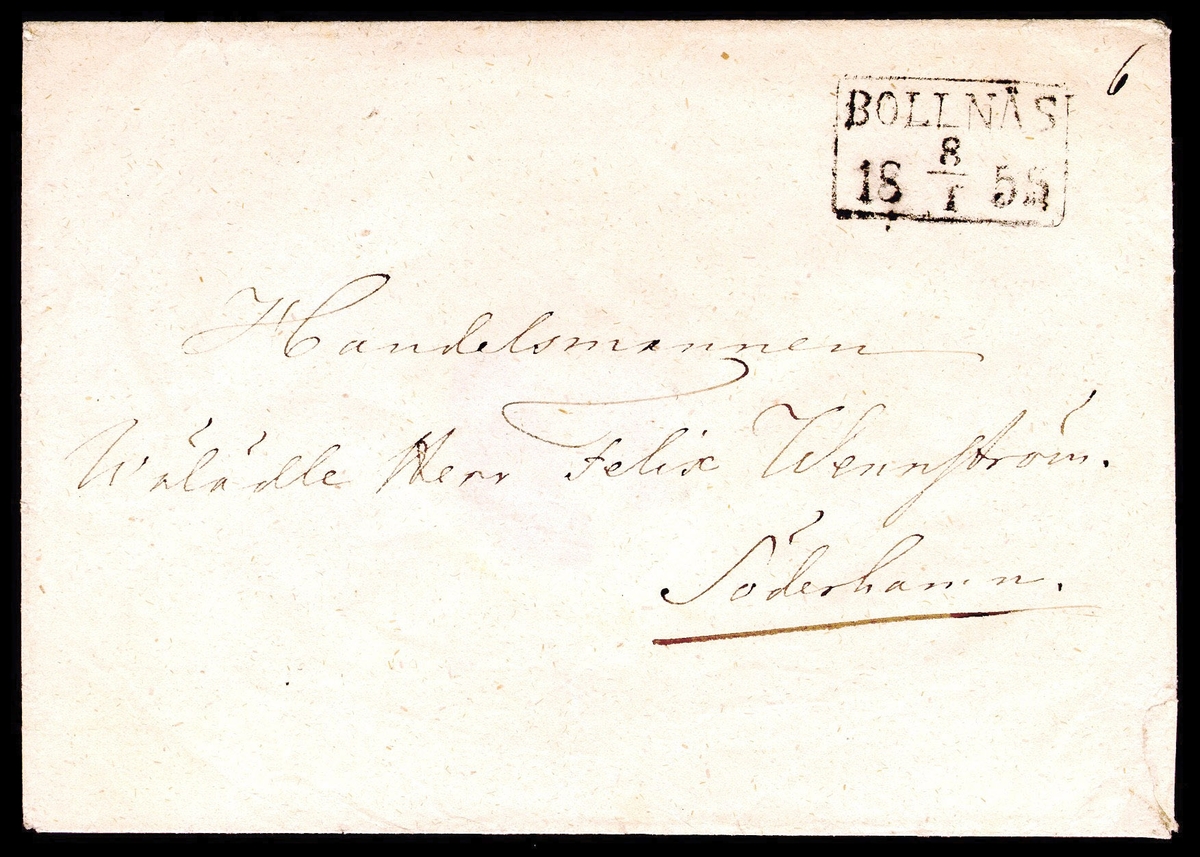 6
BOLLNÄS
18 8/1 55
Handelsmannen
Wälädle Herr Felix Wennström.
Söderhamn.